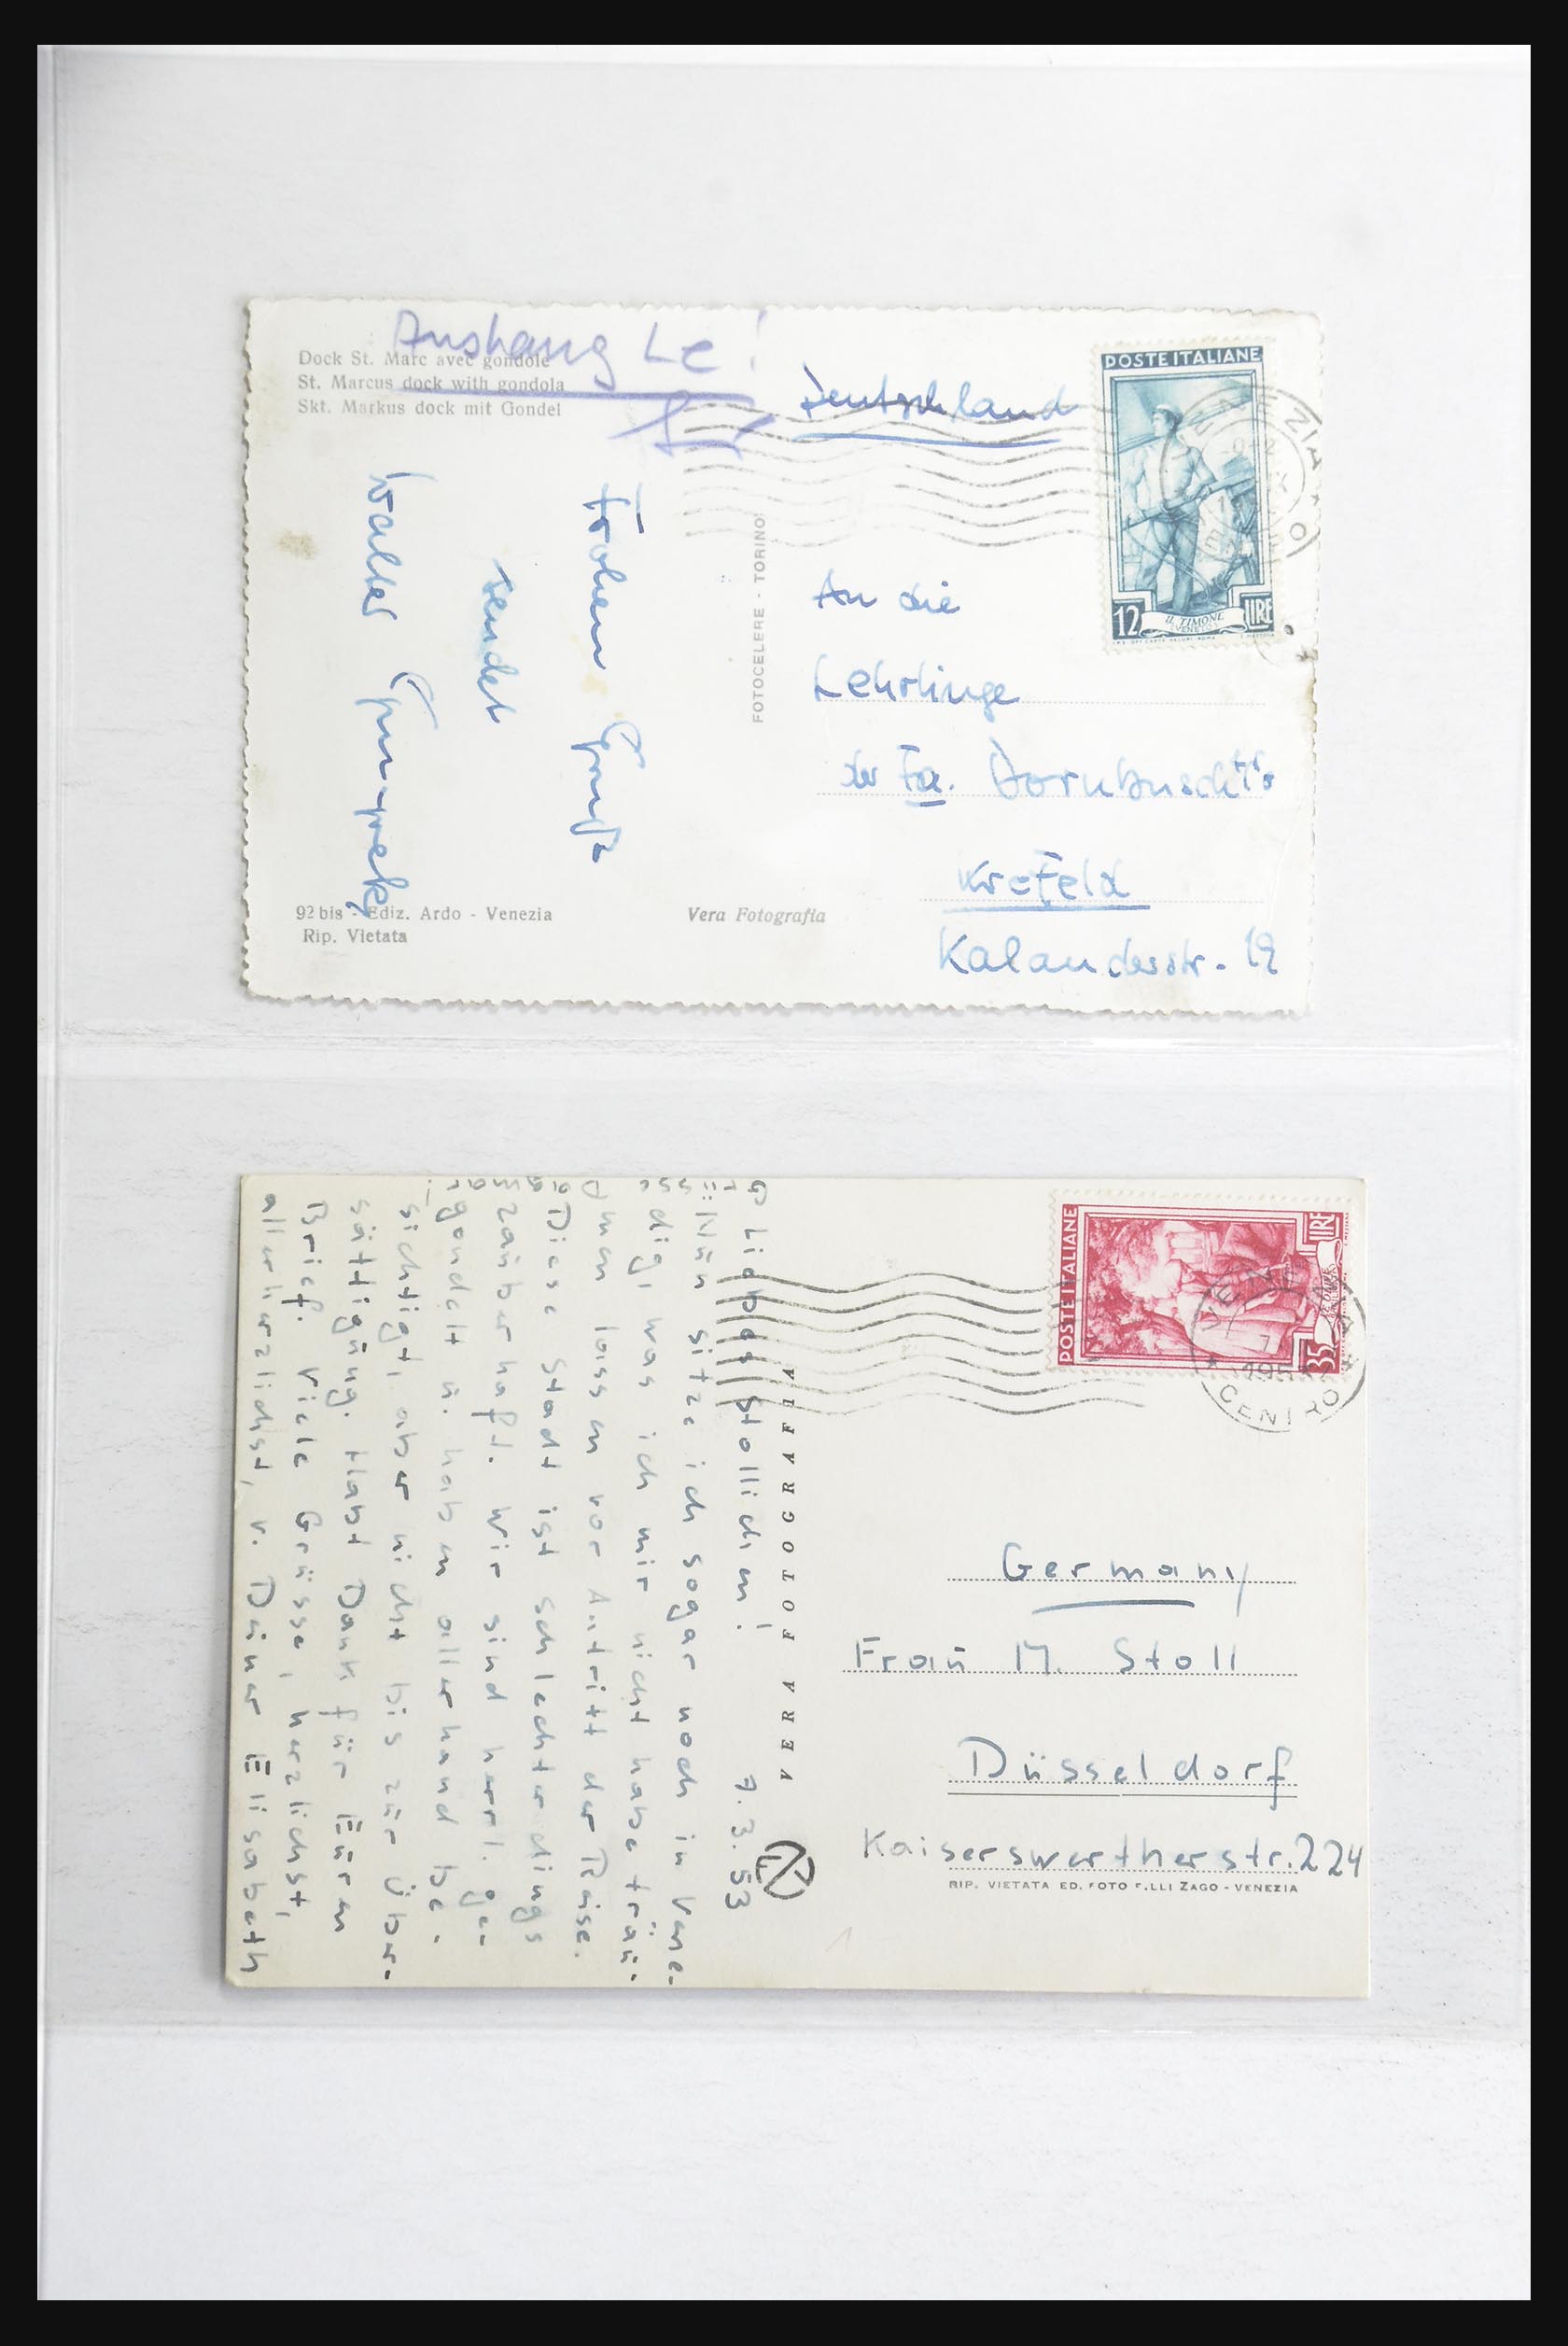 Aushang Le!
Dock St. Marc avec gondole
St. Marcus dock with gondola
Skt. Markus dock mit Gondel
Deutschland
POSTE ITALIANE
12 LIRE
IL TIMONE
VENEZIA
Frohen Gruß
sendet
Walter
FOTOCELERE - TORINO
An die
Lehrlinge
der Fa. Dornbusch
Krefeld
Kalanderstr. 19
92 bis - Ediz. Ardo - Venezia
Rip. Vietata
Vera Fotografia
POSTE ITALIANE
35 LIRE
CENTRO
7.3.53
Liebes Stollchen!
Nun sitze ich sogar noch in Vene-
dig, was ich mir nicht habe träu-
men lassen vor Antritt der Reise.
Diese Stadt ist schlechterdings
zauberhaft. Wir sind herrl. ge-
gondelt u. haben allerhand be-
sichtigt, aber nicht bis zur Über-
sättigung. Habt Dank für Euren
Brief. Viele Grüsse, herzlichst,
allerherzlichst, v. Deiner Elisabeth
VERA FOTOGRAFIA
Germany
Frau M. Stoll
Düsseldorf
Kaiserswertherstr. 224
RIP. VIETATA ED. FOTO F.LLI ZAGO - VENEZIA